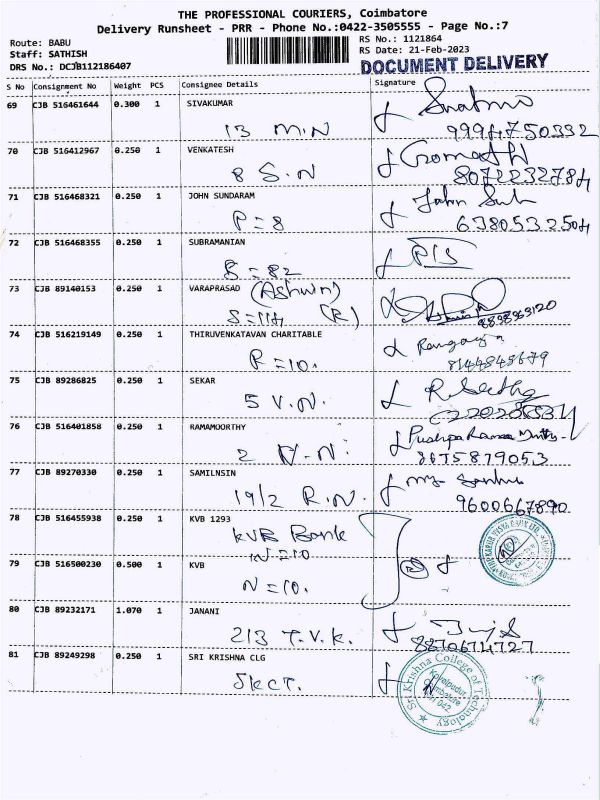 THE PROFESSIONAL COURIERS, Coimbatore
Delivery Runsheet - PRR - Phone No.:0422-3505555 - Page No.:7
Route: BABU
Staff: SATHISH
DRS No.: DCJB112186407
RS No.: 1121864
RS Date: 21-Feb-2023
DOCUMENT DELIVERY
S No Consignment No Weight PCS Consignee Details Signature
69 CJB 516461644 0.300 1 SIVAKUMAR
13 M.N 9994750332
70 CJB 516412967 0.250 1 VENKATESH
8 S.N 8072232784
71 CJB 516468321 0.250 1 JOHN SUNDARAM John
P=8 6380532504
72 CJB 516468355 0.250 1 SUBRAMANIAN
S=82
73 CJB 89140153 0.250 1 VARAPRASAD (Ashwin)
(R)
74 CJB 516219149 0.250 1 THIRUVENKATAVAN CHARITABLE
R=10. 8144848679
75 CJB 89286825 0.250 1 SEKAR
5 V.N.
76 CJB 516401858 0.250 1 RAMAMOORTHY
2 8675879053
77 CJB 89270330 0.250 1 SAMILNSIN
19/2 R.N. 9600667890
78 CJB 516455938 0.250 1 KVB 1293
KVB Bank
N=10
79 CJB 516500230 0.500 1 KVB
N=10.
80 CJB 89232171 1.070 1 JANANI
213 T.V.K. 8870614727
81 CJB 89249298 0.250 1 SRI KRISHNA CLG
Skct.
Sri Krishna College of Technology
Kovaipudur,
Coimbatore
641 042